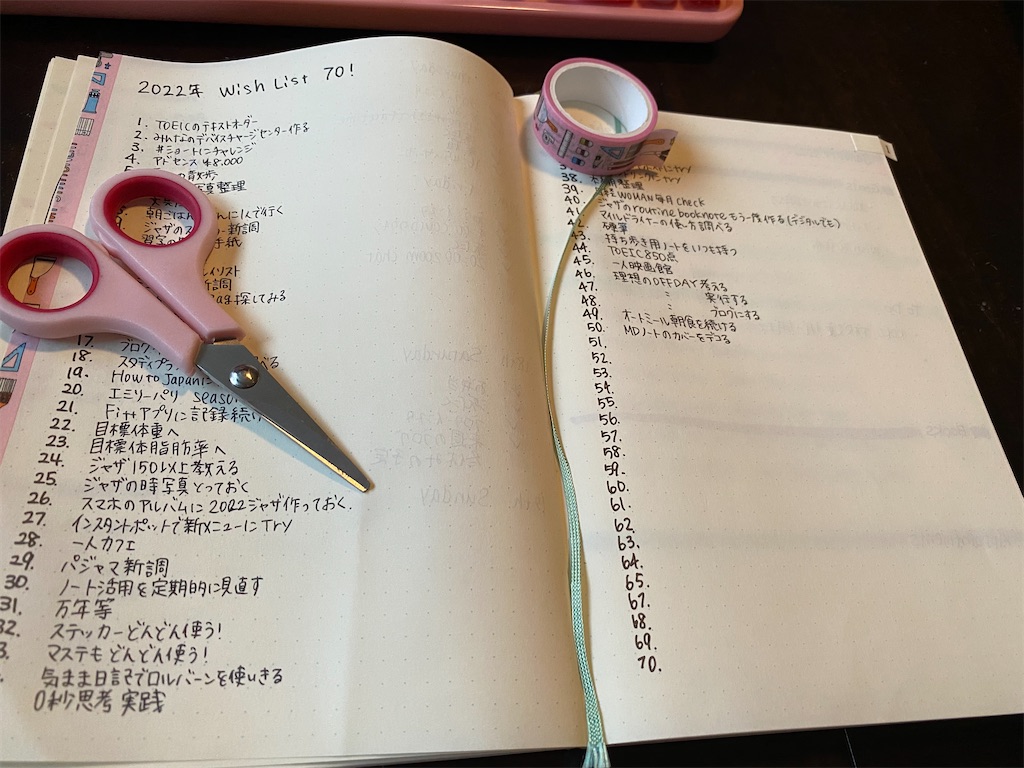 2022年 Wish List 70!
1. TOEICのテキストオーダー
2. みんなのデバイスチャージセンター作る
3. #ショートにチャレンジ
4. アドセンス ¥8.000
の散歩
写真整理
朝ごはん んに1人で行く
ジャザのス 新調
手紙
イリスト
新調
探してみる
17. ブログ
18. スタディプラ べる
19. How to Japanに
20. エミリーパリ Season
21. アプリに記録続け
22. 目標体重へ
23. 目標体脂肪率へ
24. ジャザ150以上教える
25. ジャザの時写真とっておく
26. スマホのアルバムに2022ジャザ作っておく.
27. インスタントポットで新メニューにTry
28. 一人カフェ
29. パジャマ新調
30. ノート活用を定期的に見直す
31. 万年筆
32. ステッカーどんどん使う!
3. マステもどんどん使う!
気まま日記でロルバーンを使いきる
0秒思考実践
にTry
38. 整理
39. WOMAN毎月check
40. ジャザのroutine booknoteもう一度作る(デジタルでも)
41. マイルドライナーの使い方調べる
42. 硬筆
43. 持ち歩き用ノートをいつも持つ
44. TOEIC850点
45. 一人映画館
46. 理想のOFFDAY考える
47. 〃 実行する
48. 〃 ブログにする
49. オートミール朝食を続ける
50. MDノートのカバーをデコる
51.
52.
53.
54.
55.
56.
57.
58.
59.
60.
61.
62.
63.
64.
65.
67.
68.
69.
70.